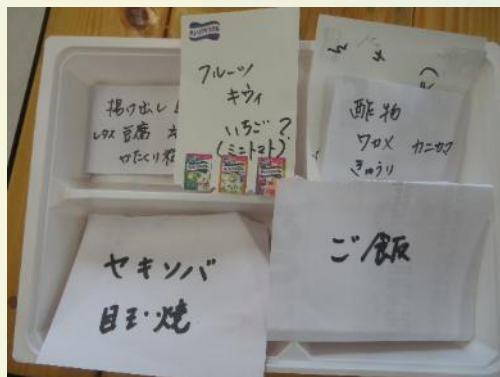 揚げ出し
レタス 豆腐
かたくり粉
フルーツ
キウィ
いちご?
(ミニトマト)
酢物
ワカメ カニカマ
きゅうり
ヤキソバ
目玉焼
ご飯